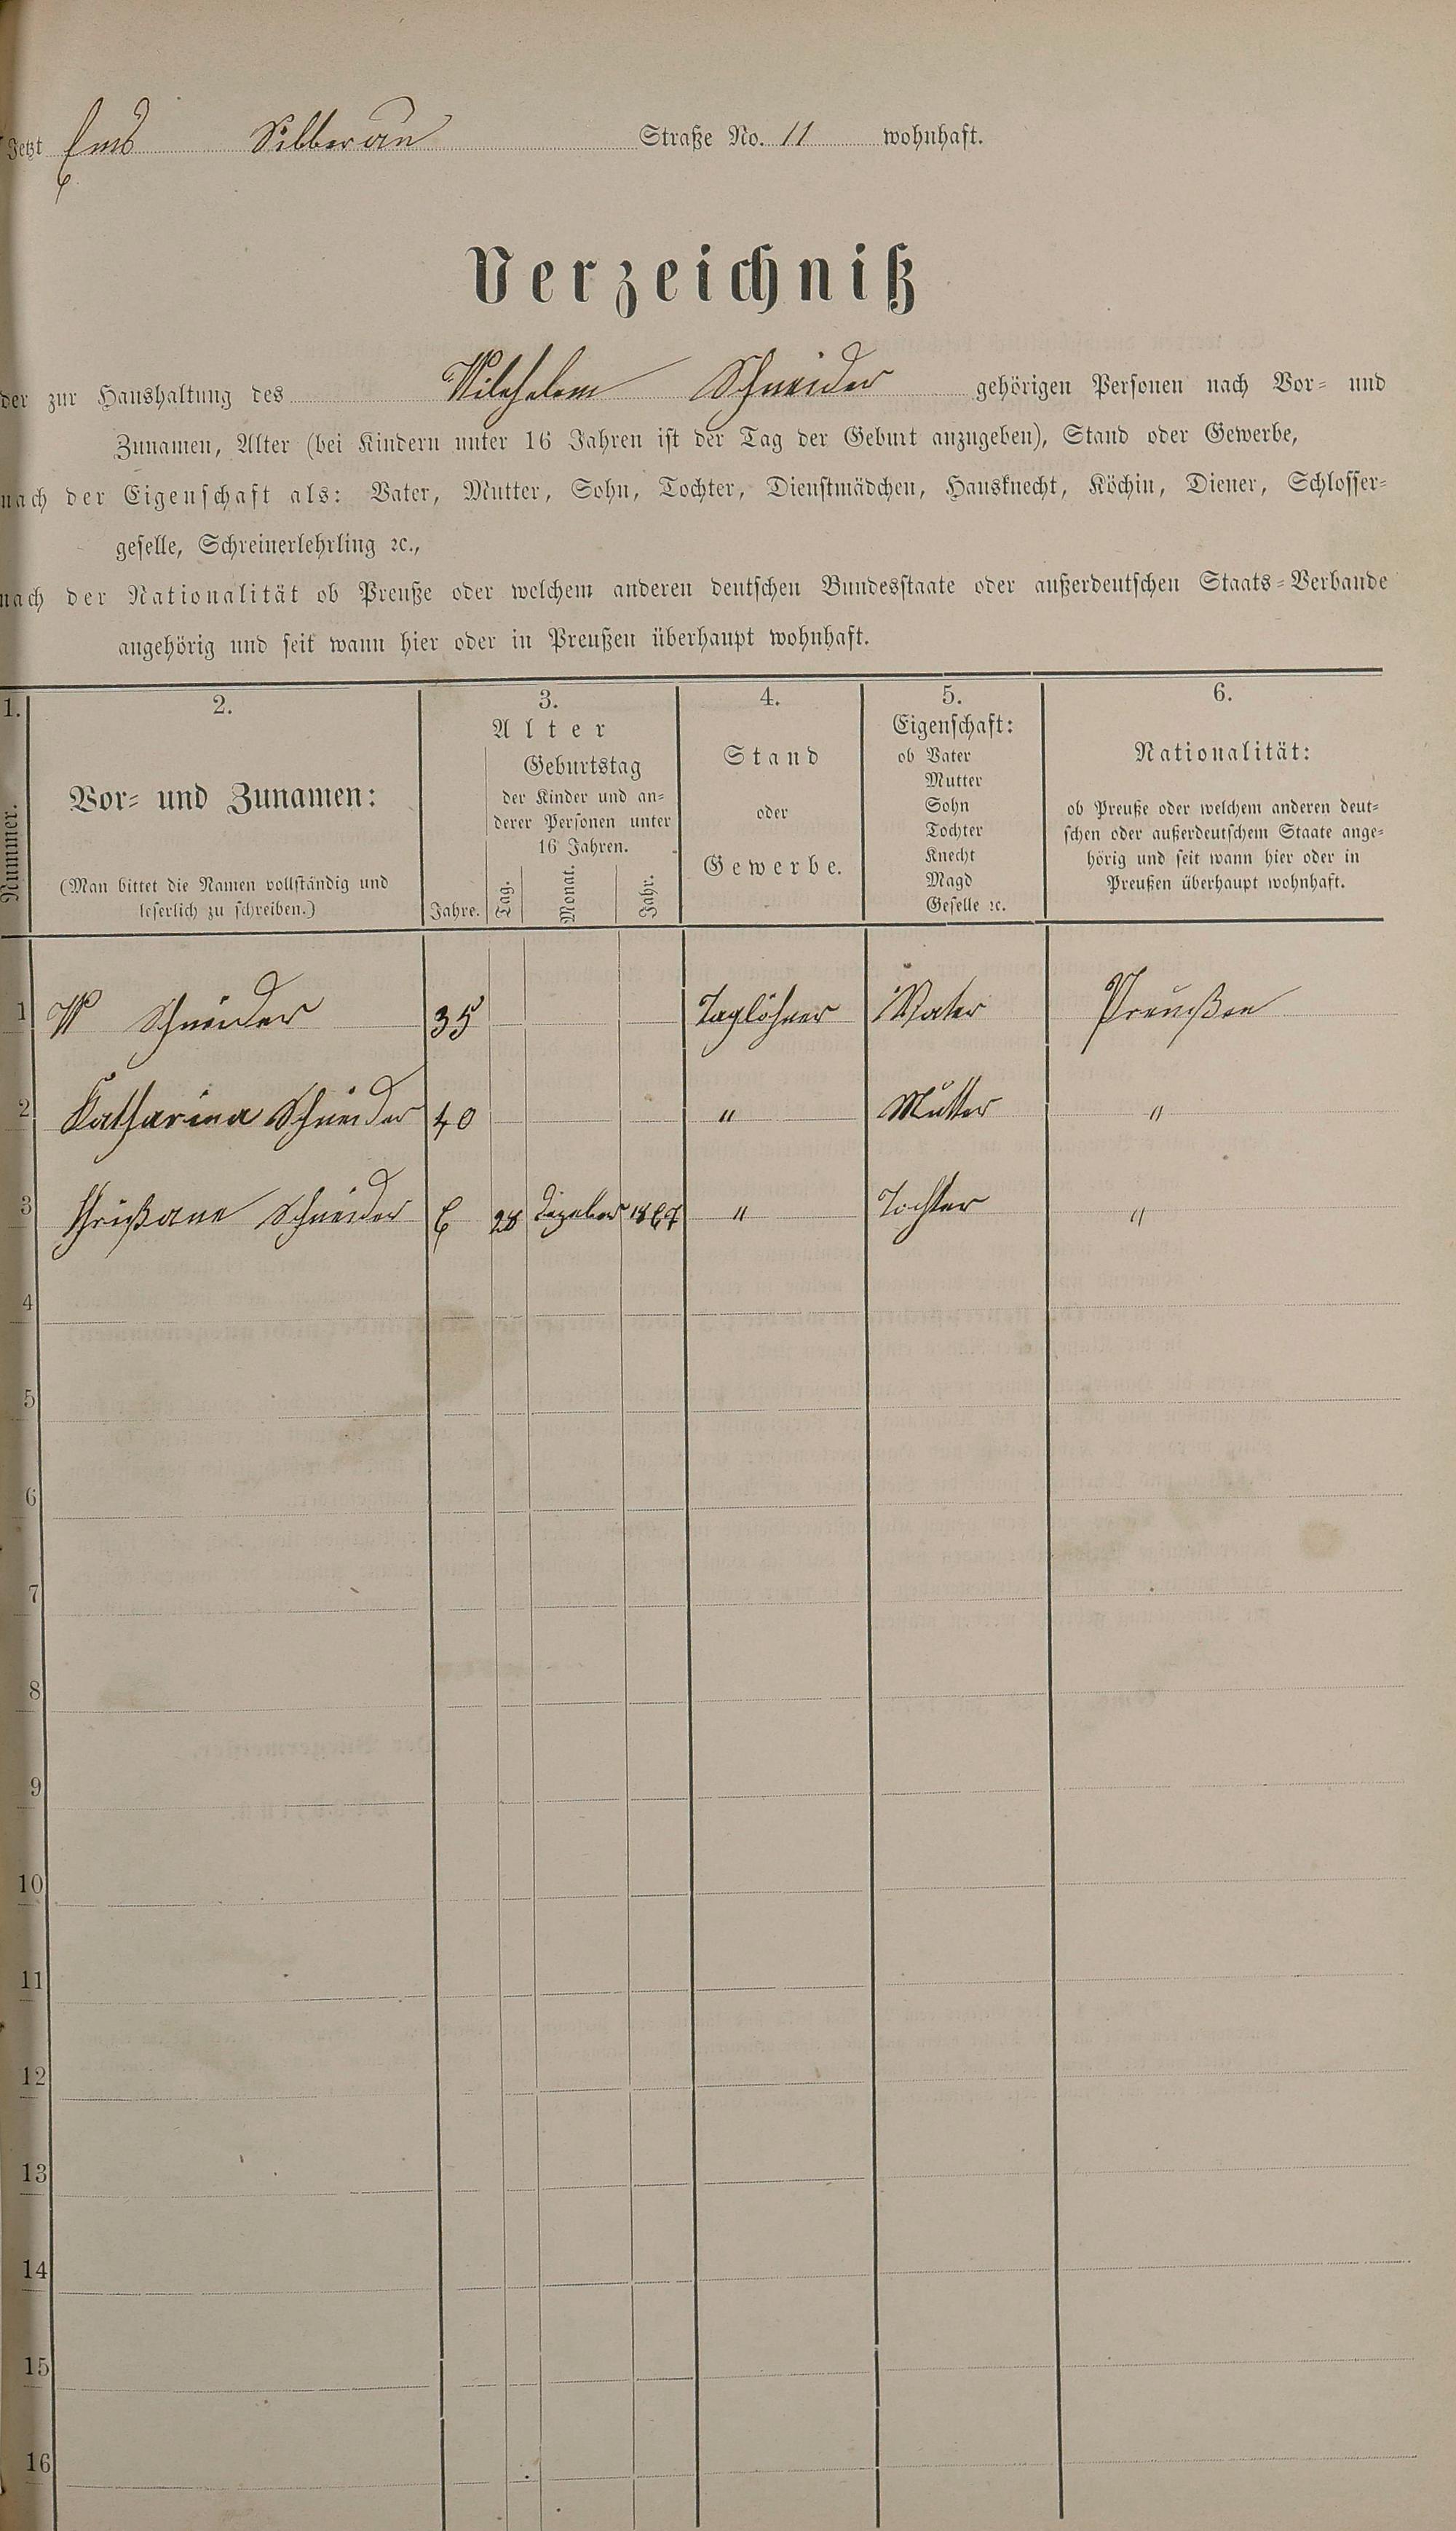 Jetzt Ems Silberau Straße No. 11 wohnhaft.
Verzeichniß
der zur Haushaltung des Wilehelem Schneider gehörigen Personen nach Vor- und
Zunamen, Alter (bei Kindern unter 16 Jahren ist der Tag der Geburt anzugeben), Stand oder Gewerbe,
nach der Eigenschaft als: Vater, Mutter, Sohn, Tochter, Dienstmädchen, Hausknecht, Köchin, Diener, Schlosser-
geselle, Schreinerlehrling ꝛc.,
nach der Nationalität ob Preuße oder welchem anderen deutschen Bundesstaate oder außerdeutschen Staats-Verbande
angehörig und seit wann hier oder in Preußen überhaupt wohnhaft.
1.
Nummer.
2.
Vor- und Zunamen:
(Man bittet die Namen vollständig und
leserlich zu schreiben.)
3.
Alter
Jahre.
Geburtstag
der Kinder und an-
derer Personen unter
16 Jahren.
Tag.
Monat.
Jahr.
4.
Stand
oder
Gewerbe.
5.
Eigenschaft:
ob Vater
Mutter
Sohn
Tochter
Knecht
Magd
Geselle ꝛc.
6.
Nationalität:
ob Preuße oder welchem anderen deut-
schen oder außerdeutschem Staate ange-
hörig und seit wann hier oder in
Preußen überhaupt wohnhaft.
1 W Schneider 35 Taglöhner Vater Preußen
2 Katharina Schneider 40 " Mutter "
3 Schneider 6 28 Dezeber 1867 " Tochter "
4
5
6
7
8
9
10
11
12
13
14
15
16